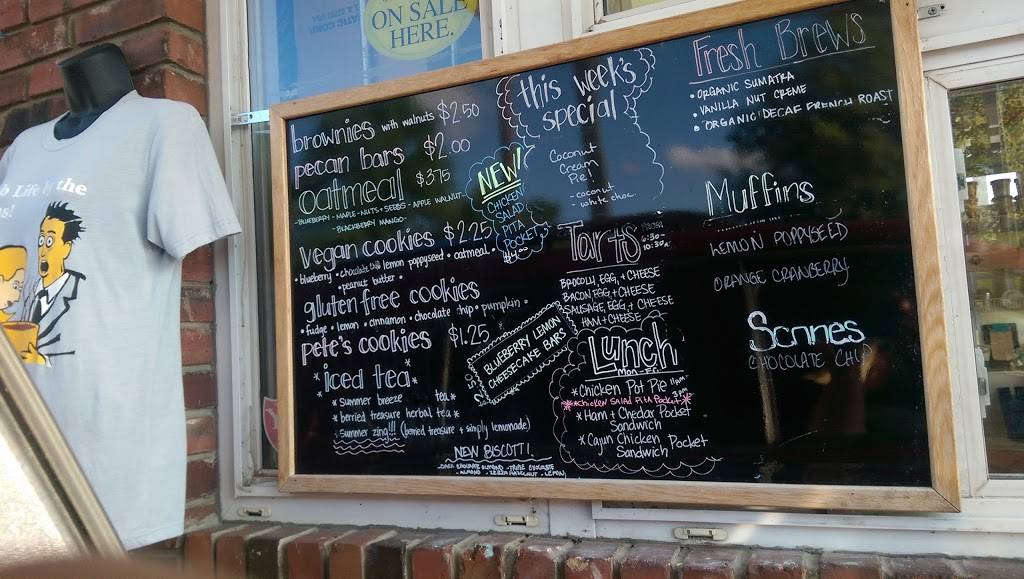 ON SALE
HERE.
Life the
brownies with walnuts $2.50
pecan bars $2.00
oatmeal $3.75
- BLUEBERRY - MAPLE - NUTS + SEEDS - APPLE WALNUT
- BLACKBERRY MANGO -
vegan cookies $2.25
• blueberry • chocolate chip lemon poppyseed • oatmeal •
• peanut butter •
gluten free cookies
• fudge • lemon • cinnamon • chocolate chip • pumpkin •
pete's cookies $1.25
*iced tea*
* summer breeze tea *
* berried treasure herbal tea *
summer zing!!! (berried treasure + simply lemonade)
NEW!
CHICKEN
SALAD
PITA
POCKET
$4.00
this week's
special
Coconut
Cream
Pie!
- coconut
- white choc.
Tarts
10:30a
BROCOLLI, EGG, + CHEESE
BACON, EGG + CHEESE
SAUSAGE EGG + CHEESE
HAM + CHEESE
BLUEBERRY LEMON
CHEESECAKE BARS
Lunch
MON - FRI
* Chicken Pot Pie
*Chicken Salad Pita Pocket*
* Ham + Chedar Pocket
Sandwich
* Cajun Chicken Pocket
Sandwich
NEW BISCOTTI!
- DARK CHOCOLATE ALMOND - TRIPLE CHOCOLATE
- ALMOND - HAZELNUT - LEMON
Fresh Brews
• ORGANIC SUMATRA
• VANILLA NUT CREME
• ORGANIC DECAF FRENCH ROAST
Muffins
LEMON POPPYSEED
ORANGE CRANBERRY
Scones
CHOCOLATE CHIP